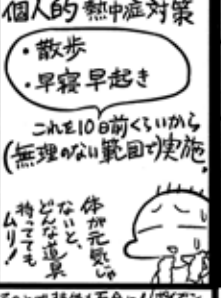 個人的 熱中症対策
・散歩
・早寝早起き
これを10日前くらいから
(無理のない範囲で)実施。
体が元気じゃ
ないと、
どんな道具
持ってても
ムリ!